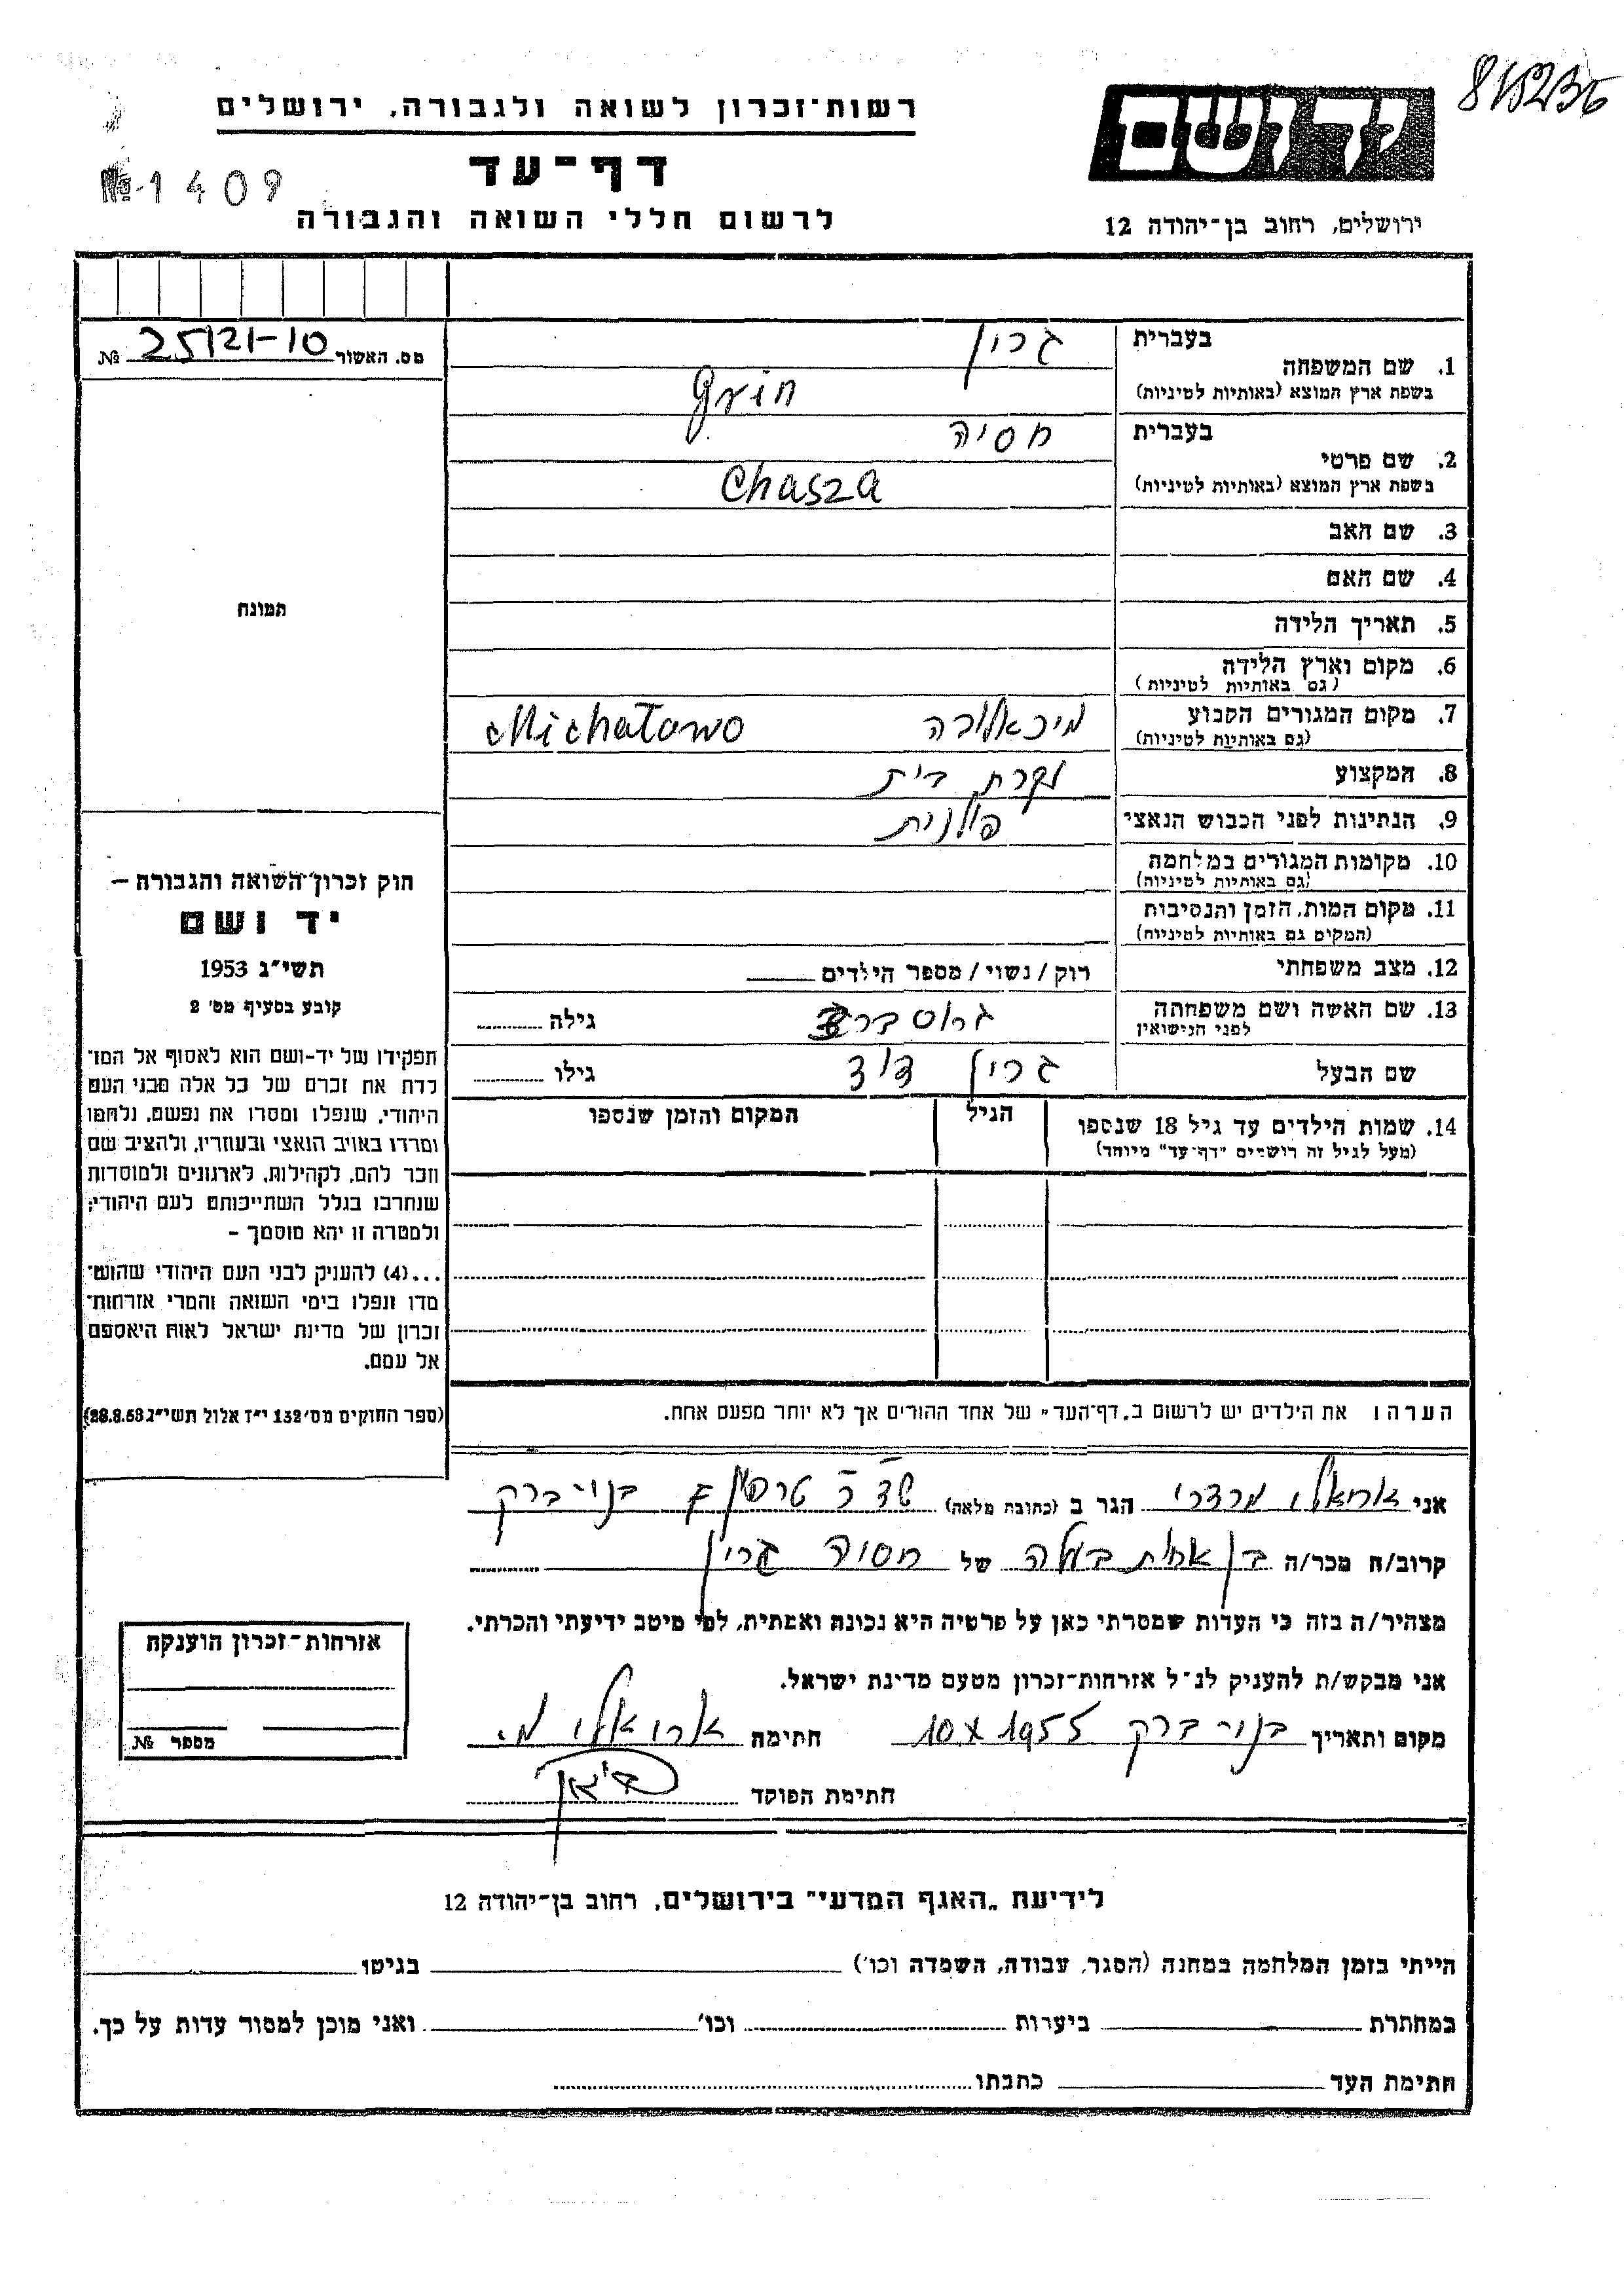 818236
רשות־זכרון לשואה ולגבורה, ירושלים
דף־עד
לרשום חללי השואה והגבורה
№ 1409
יד ושם
ירושלים, רחוב בן־יהודה 12
מס. האשור 25121-10 №
תמונה
1. שם המשפחה
בעברית גרין
בשפת ארץ המוצא (באותיות לטיניות) Grin
2. שם פרטי
בעברית חסיה
בשפת ארץ המוצא (באותיות לטיניות) Chasza
3. שם האב
4. שם האם
5. תאריך הלידה
6. מקום וארץ הלידה
(גם באותיות לטיניות)
7. מקום המגורים הקבוע מיכאלובה Michatowo
(גם באותיות לטיניות)
8. המקצוע עקרת בית
9. הנתינות לפני הכבוש הנאצי פולנית
10. מקומות המגורים במלחמה
(גם באותיות לטיניות)
11. מקום המות, הזמן והנסיבות
(המקום גם באותיות לטיניות)
12. מצב משפחתי רוק / נשוי / מספר הילדים
13. שם האשה ושם משפחתה
לפני הנישואין גילה
שם הבעל גרין דוד גילו
14. שמות הילדים עד גיל 18 שנספו הגיל המקום והזמן שנספו
(מעל לגיל זה רושמים "דף־עד" מיוחד)
חוק זכרון השואה והגבורה –
יד ושם
תשי"ג 1953
קובע בסעיף מס' 2
תפקידו של יד-ושם הוא לאסוף אל המו־
לדת את זכרם של כל אלה מבני העם
היהודי, שנפלו ומסרו את נפשם, נלחמו
ומרדו באויב הנאצי ובעוזריו, ולהציב שם
וזכר להם, לקהילות, לארגונים ולמוסדות
שנחרבו בגלל השתייכותם לעם היהודי;
ולמטרה זו יהא מוסמך –
...(4) להעניק לבני העם היהודי שהוש־
מדו ונפלו בימי השואה והמרי אזרחות־
זכרון של מדינת ישראל לאות היאספם
אל עמם.
(ספר החוקים מס' 132 י"ז אלול תשי"ג 28.8.53)
הערה: את הילדים יש לרשום ב„דף־העד" של אחד ההורים אך לא יותר מפעם אחת.
אני אריאלי מרדכי הגר ב (כתובת מלאה) שד' ר' טרפון 7 בני-ברק
קרוב/ה מכר/ה בן אחות בעלה של חסיה גרין
מצהיר/ה בזה כי העדות שמסרתי כאן על פרטיה היא נכונה ואמתית, לפי מיטב ידיעתי והכרתי.
אני מבקש/ת להעניק לנ"ל אזרחות־זכרון מטעם מדינת ישראל.
מקום ותאריך בני ברק 10.X 1955 חתימה אריאלי מ.
חתימת הפוקד
אזרחות־זכרון הוענקה
מספר №
לידיעת „האגף המדעי" בירושלים, רחוב בן־יהודה 12
הייתי בזמן המלחמה במחנה (הסגר, עבודה, השמדה וכו') בגיטו
במחתרת ביערות וכו' ואני מוכן למסור עדות על כך.
חתימת העד כתבתו